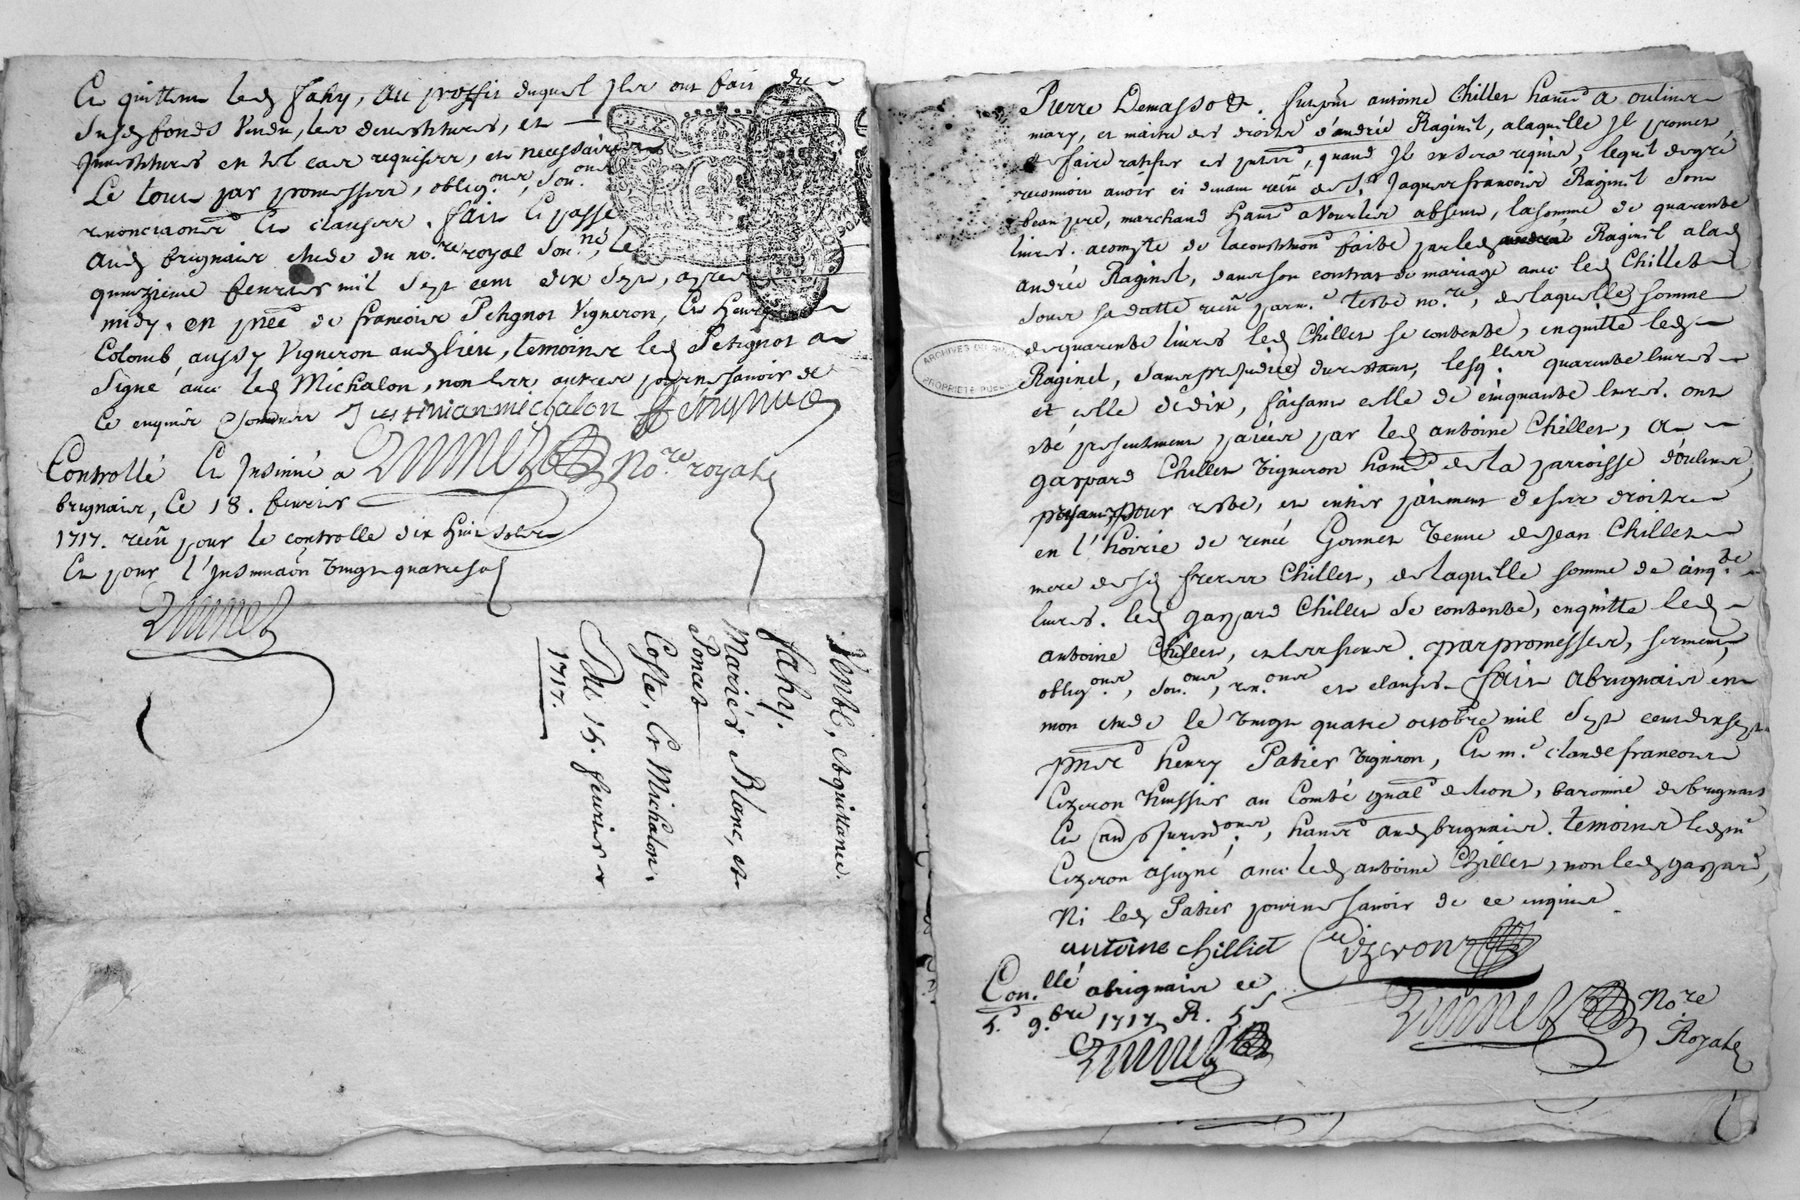 Et quittent led Fahy, au proffit duquel jls ont fait du
susd fonds vendu, les devestitures, et
jnvestitures en tel cas requises, et necessaires
Le tout par promesses, oblig.ons, soû.ons
renonciaons Et clauses. fait Et passé
aud brignais etude du no.re royal soû.né, le
quinzieme feuvrier mil sept cent dix sept, apres
midy. en pñce de françois Petignot Vigneron, Et Henry
Colomb aussy Vigneron aud lieu, temoins led Petignot a
signé avec led Michalon, non les autres pour ne sçavoir de
ce enquis et sommes Justinian michalon
no.re royal
Controllé Et Jnsinué a
brignais, ce 18. feuvrier
1717. reçu pour le controlle dix huit sols
Et pour l'jnsinuaôn vingt quatre sols
Vente, et quittance.
fahy.
Mariés Blanc, et
Poncet
Coste, Et Michalon.
Du 15. feuvrier
1717.
Pierre Demasso &. fut pñt antoine Chillet habit a oulins
mary, et maitre des droits d'andrée Raginel, a laquelle jl promet
de faire ratifier ces pñtes, quand jl en sera requis, lequel de gré
reconnoit avoir ci devant reçu de S.r Jaques francois Raginel son
beau pere, marchand habit a Vourles absent, la somme de quarente
livres. a compte de la constitution faite par led Raginel a lad
andrée Raginel, dans son contrat de mariage avec led Chillet
sous sa datte reçu par m.e terte no.re, de laquelle somme
de quarente livres led Chillet se contente, en quitte led
Raginel, sans prejudice du restant, lesq.lles quarente livres
ARCHIVES DU
PROPRIÉTÉ PUBLIQUE
et celle de dix, faisant celle de cinquante livres. ont
été presentement payées par led antoine Chillet, a
gaspard Chillet vigneron habit de la parroisse d'oulins,
pour reste, et entier payement de ses droits
en l'hoirie de renée Gonnet veuve de Jean Chillet
mere desd freres Chillet, de laquelle somme de cinq.te
livres. led gaspard Chillet se contente, en quitte led
antoine Chillet, et les siens. par promesses, serment,
oblig.ons, soû.ons, ren.ons et clauses. fait a brignais en
mon etude le vingt quatre octobre mil sept cent dix sept
pñts henry Patier vigneron, Et m.e claude francois
Cizeron huissier au Comté de lion, baronnie de brignais
Et jurisd.ons, habit aud brignais. temoins led m.e
Cizeron a signé avec led antoine Chillet, non led gaspard,
Ni led Patier pour ne sçavoir de ce enquis
antoine chilliet Cizeron
Con.llé a brignais ce
4. 9.bre 1717 R. 5s
No.re
Royal